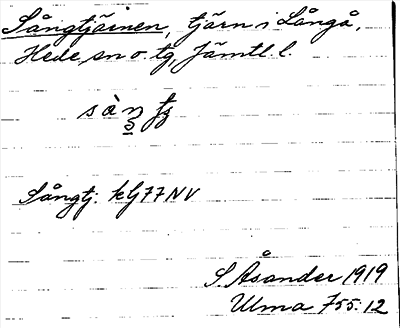 Sångtjärnen, tjärn i Långå,
Hede sn o. tg, Jämtl. l.
Sångtj: kG77NV
S. Åsander 1919
Ulma 755:12